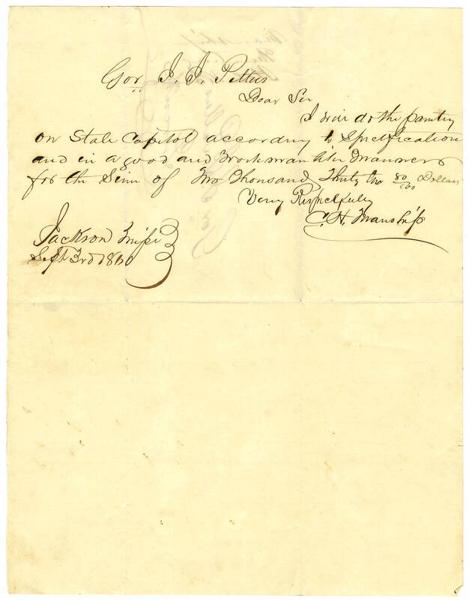 Gov. J. J. Pettus
Dear Sir
I will do the painting
on State Capitol according to Specification
and in a good and Workman like Manner
for the Sum of Two Thousand Thirty two 50/00 Dollars
Very Respectfully
C. H. Manship
Jackson Missi
Sept 3rd 1860